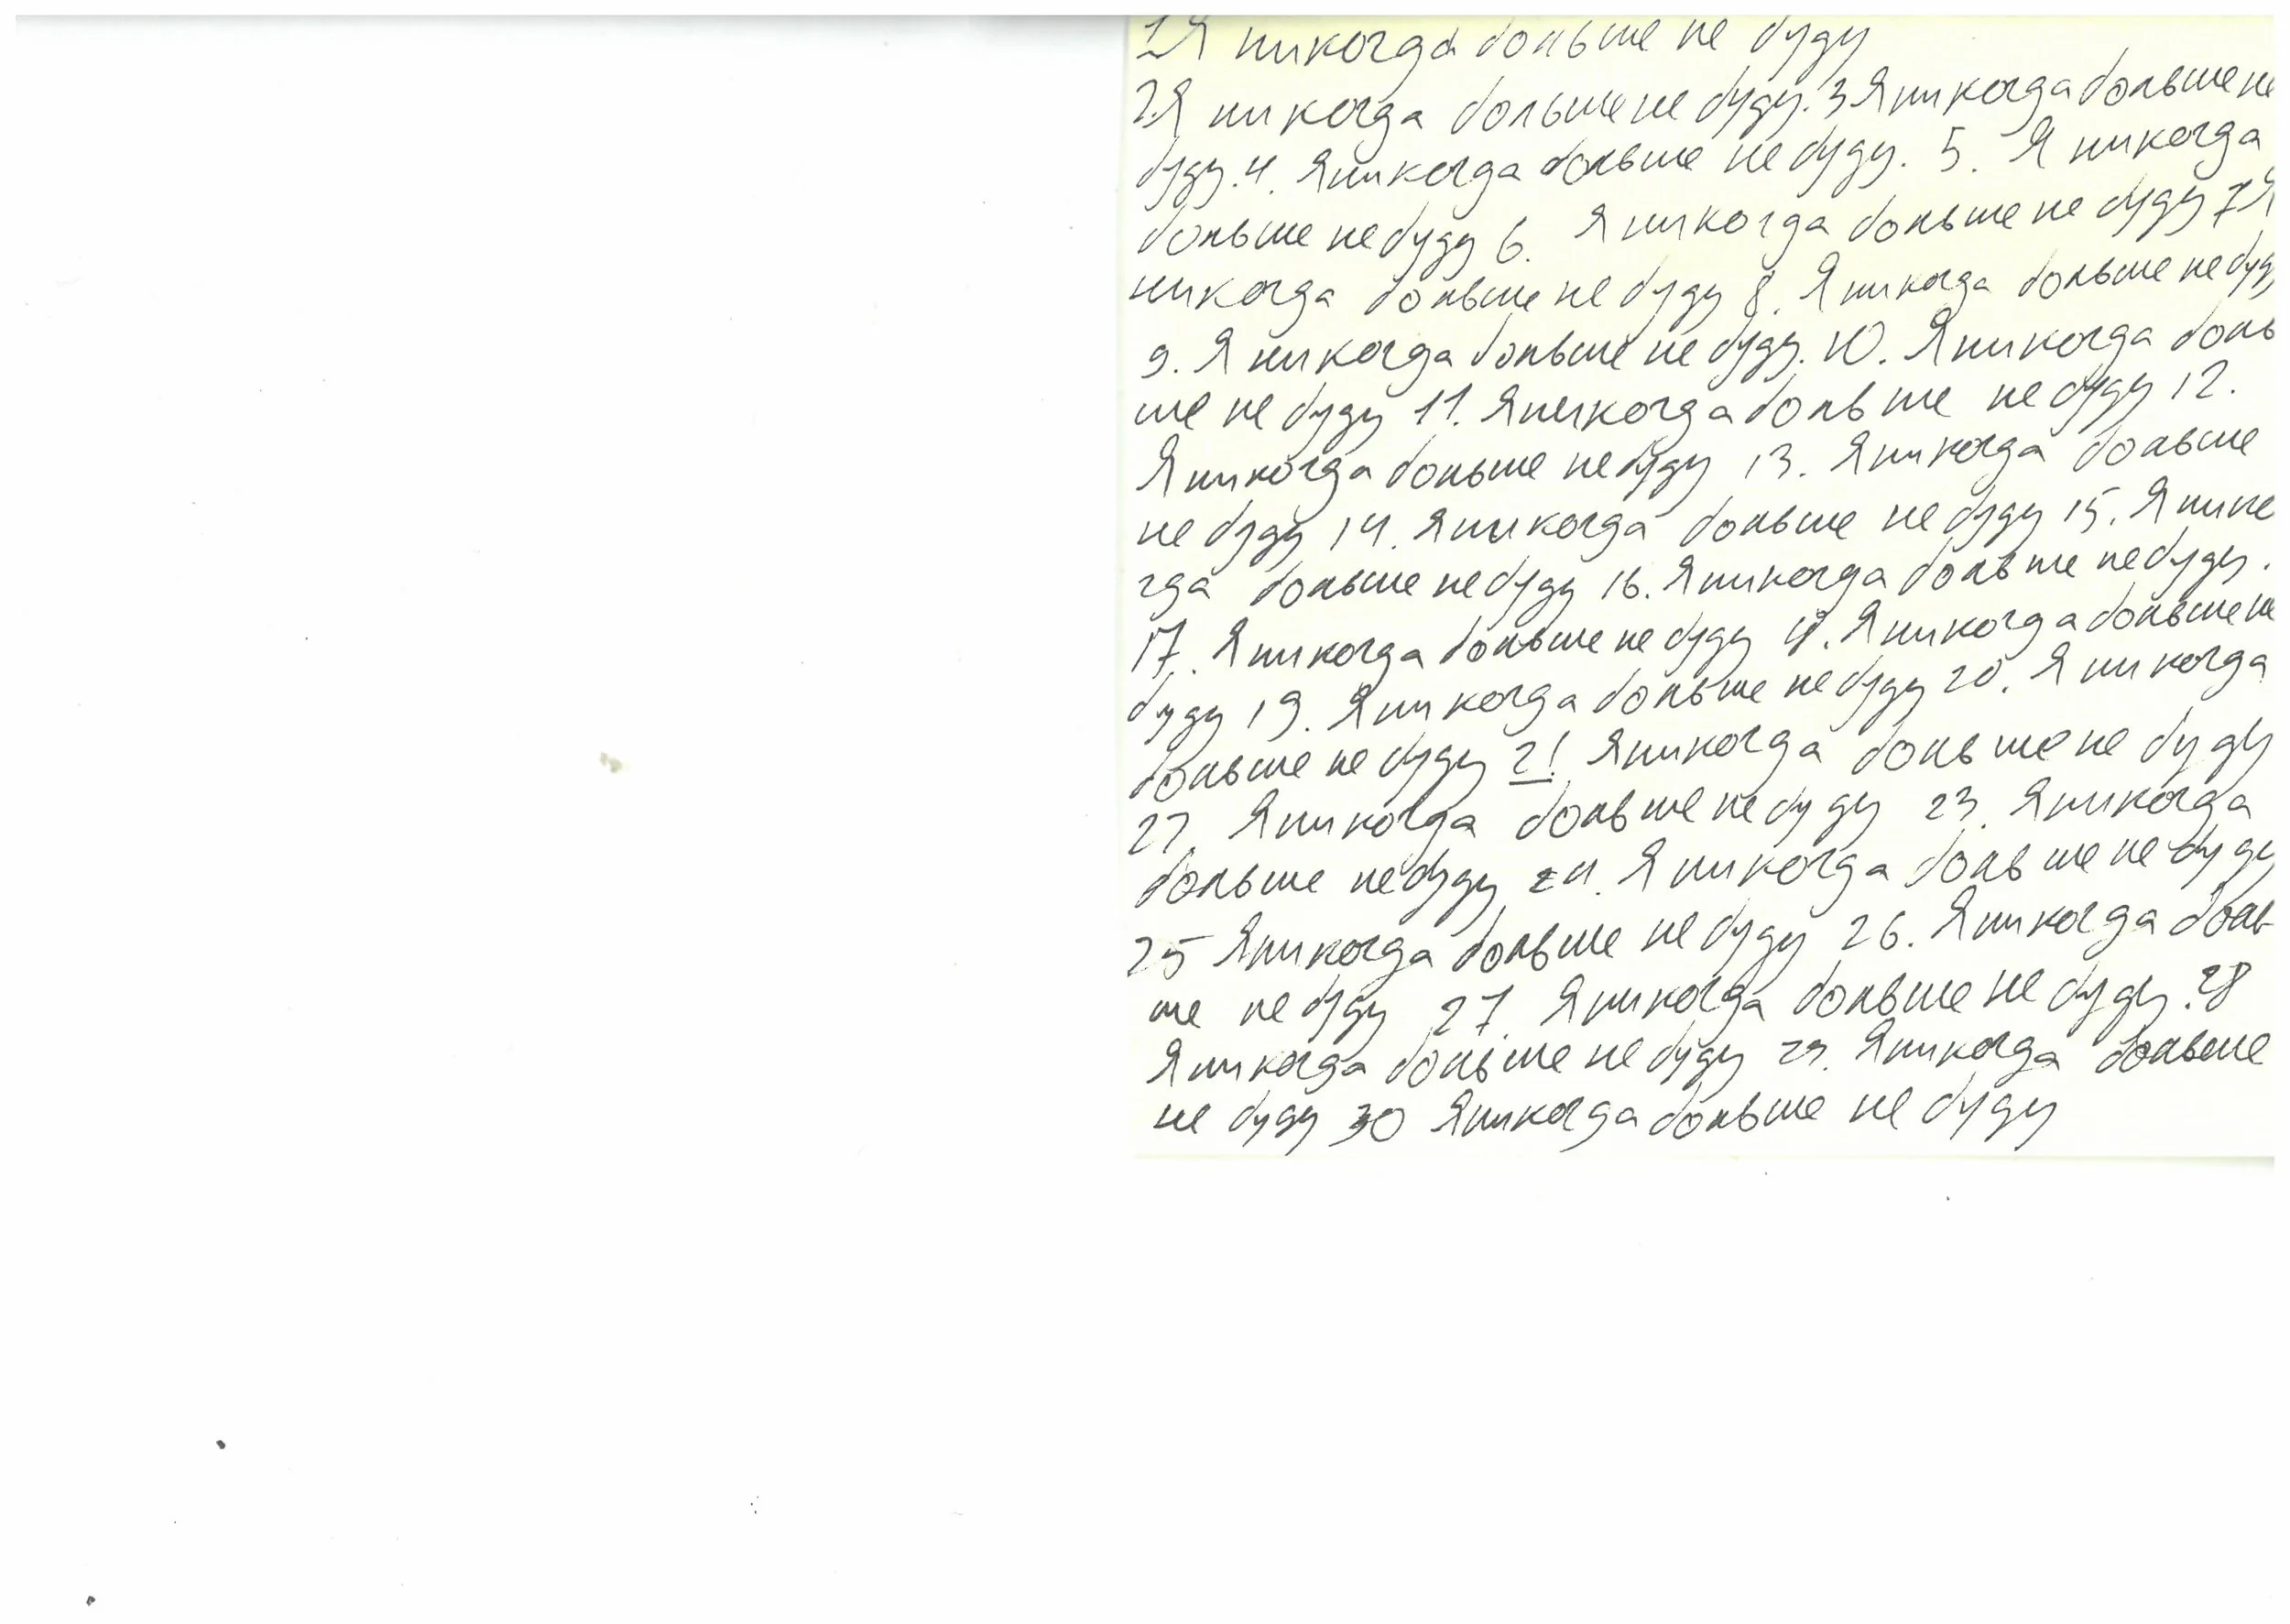 1 Я никогда больше не буду
2.Я никогда больше не буду. 3 Я никогда больше не
буду. 4. Я никогда больше не буду. 5. Я никогда
больше не буду 6. Я никогда больше не буду 7 Я
никогда больше не буду 8. Я никогда больше не буду
9. Я никогда больше не буду. 10. Я никогда боль
ше не буду 11. Я никогда больше не буду 12.
Я никогда больше не буду 13. Я никогда больше
не буду 14. Я никогда больше не буду 15. Я нико
гда больше не буду 16. Я никогда больше не буду.
17. Я никогда больше не буду 18. Я никогда больше не
буду 19. Я никогда больше не буду 20. Я никогда
больше не буду 21 Я никогда больше не буду
22. Я никогда больше не буду 23. Я никогда
больше не буду 24. Я никогда больше не буду
25 Я никогда больше не буду 26. Я никогда боль
ше не буду 27. Я никогда больше не буду. 28
Я никогда больше не буду 29. Я никогда больше
не буду 30 Я никогда больше не буду